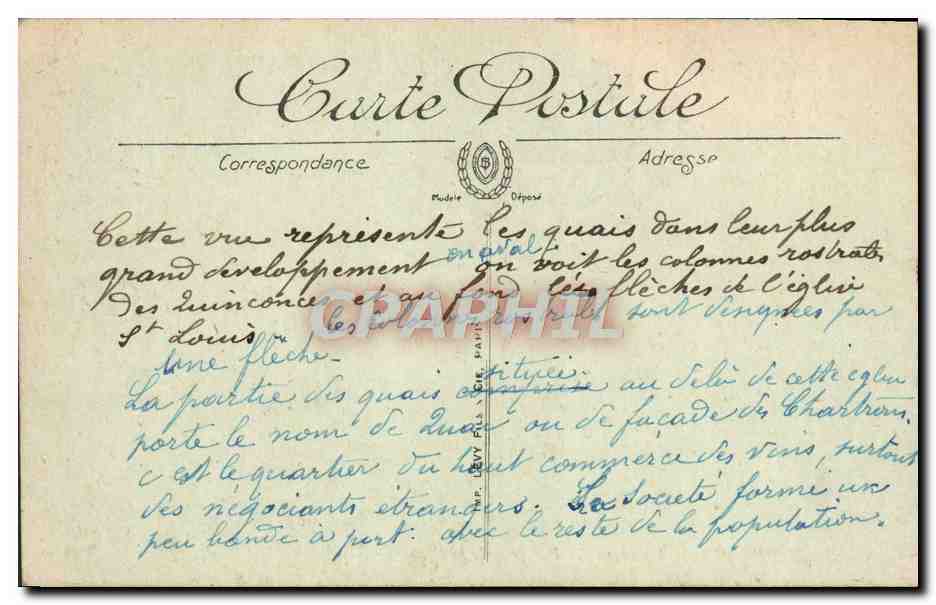 Carte Postale
Correspondance
Adresse
B
Modele Déposé
Cette vue représente les quais dans leur plus
en aval
grand developpement on voit les colonnes rostrales
des Quinconces et au fond les flèches de l'église
St Louis les colonnes rostrales sont designées par
une flèche -
située
La partie des quais comprise au delà de cette eglise
porte le nom de Quai ou de façade des Chartrons.
c est le quartier du haut commerce des vins, surtout
des négociants étrangers. La Société forme un
peu bande à part. avec le reste de la population.
CARAPHIL
IMP. LEVY FILS CIE, PARIS